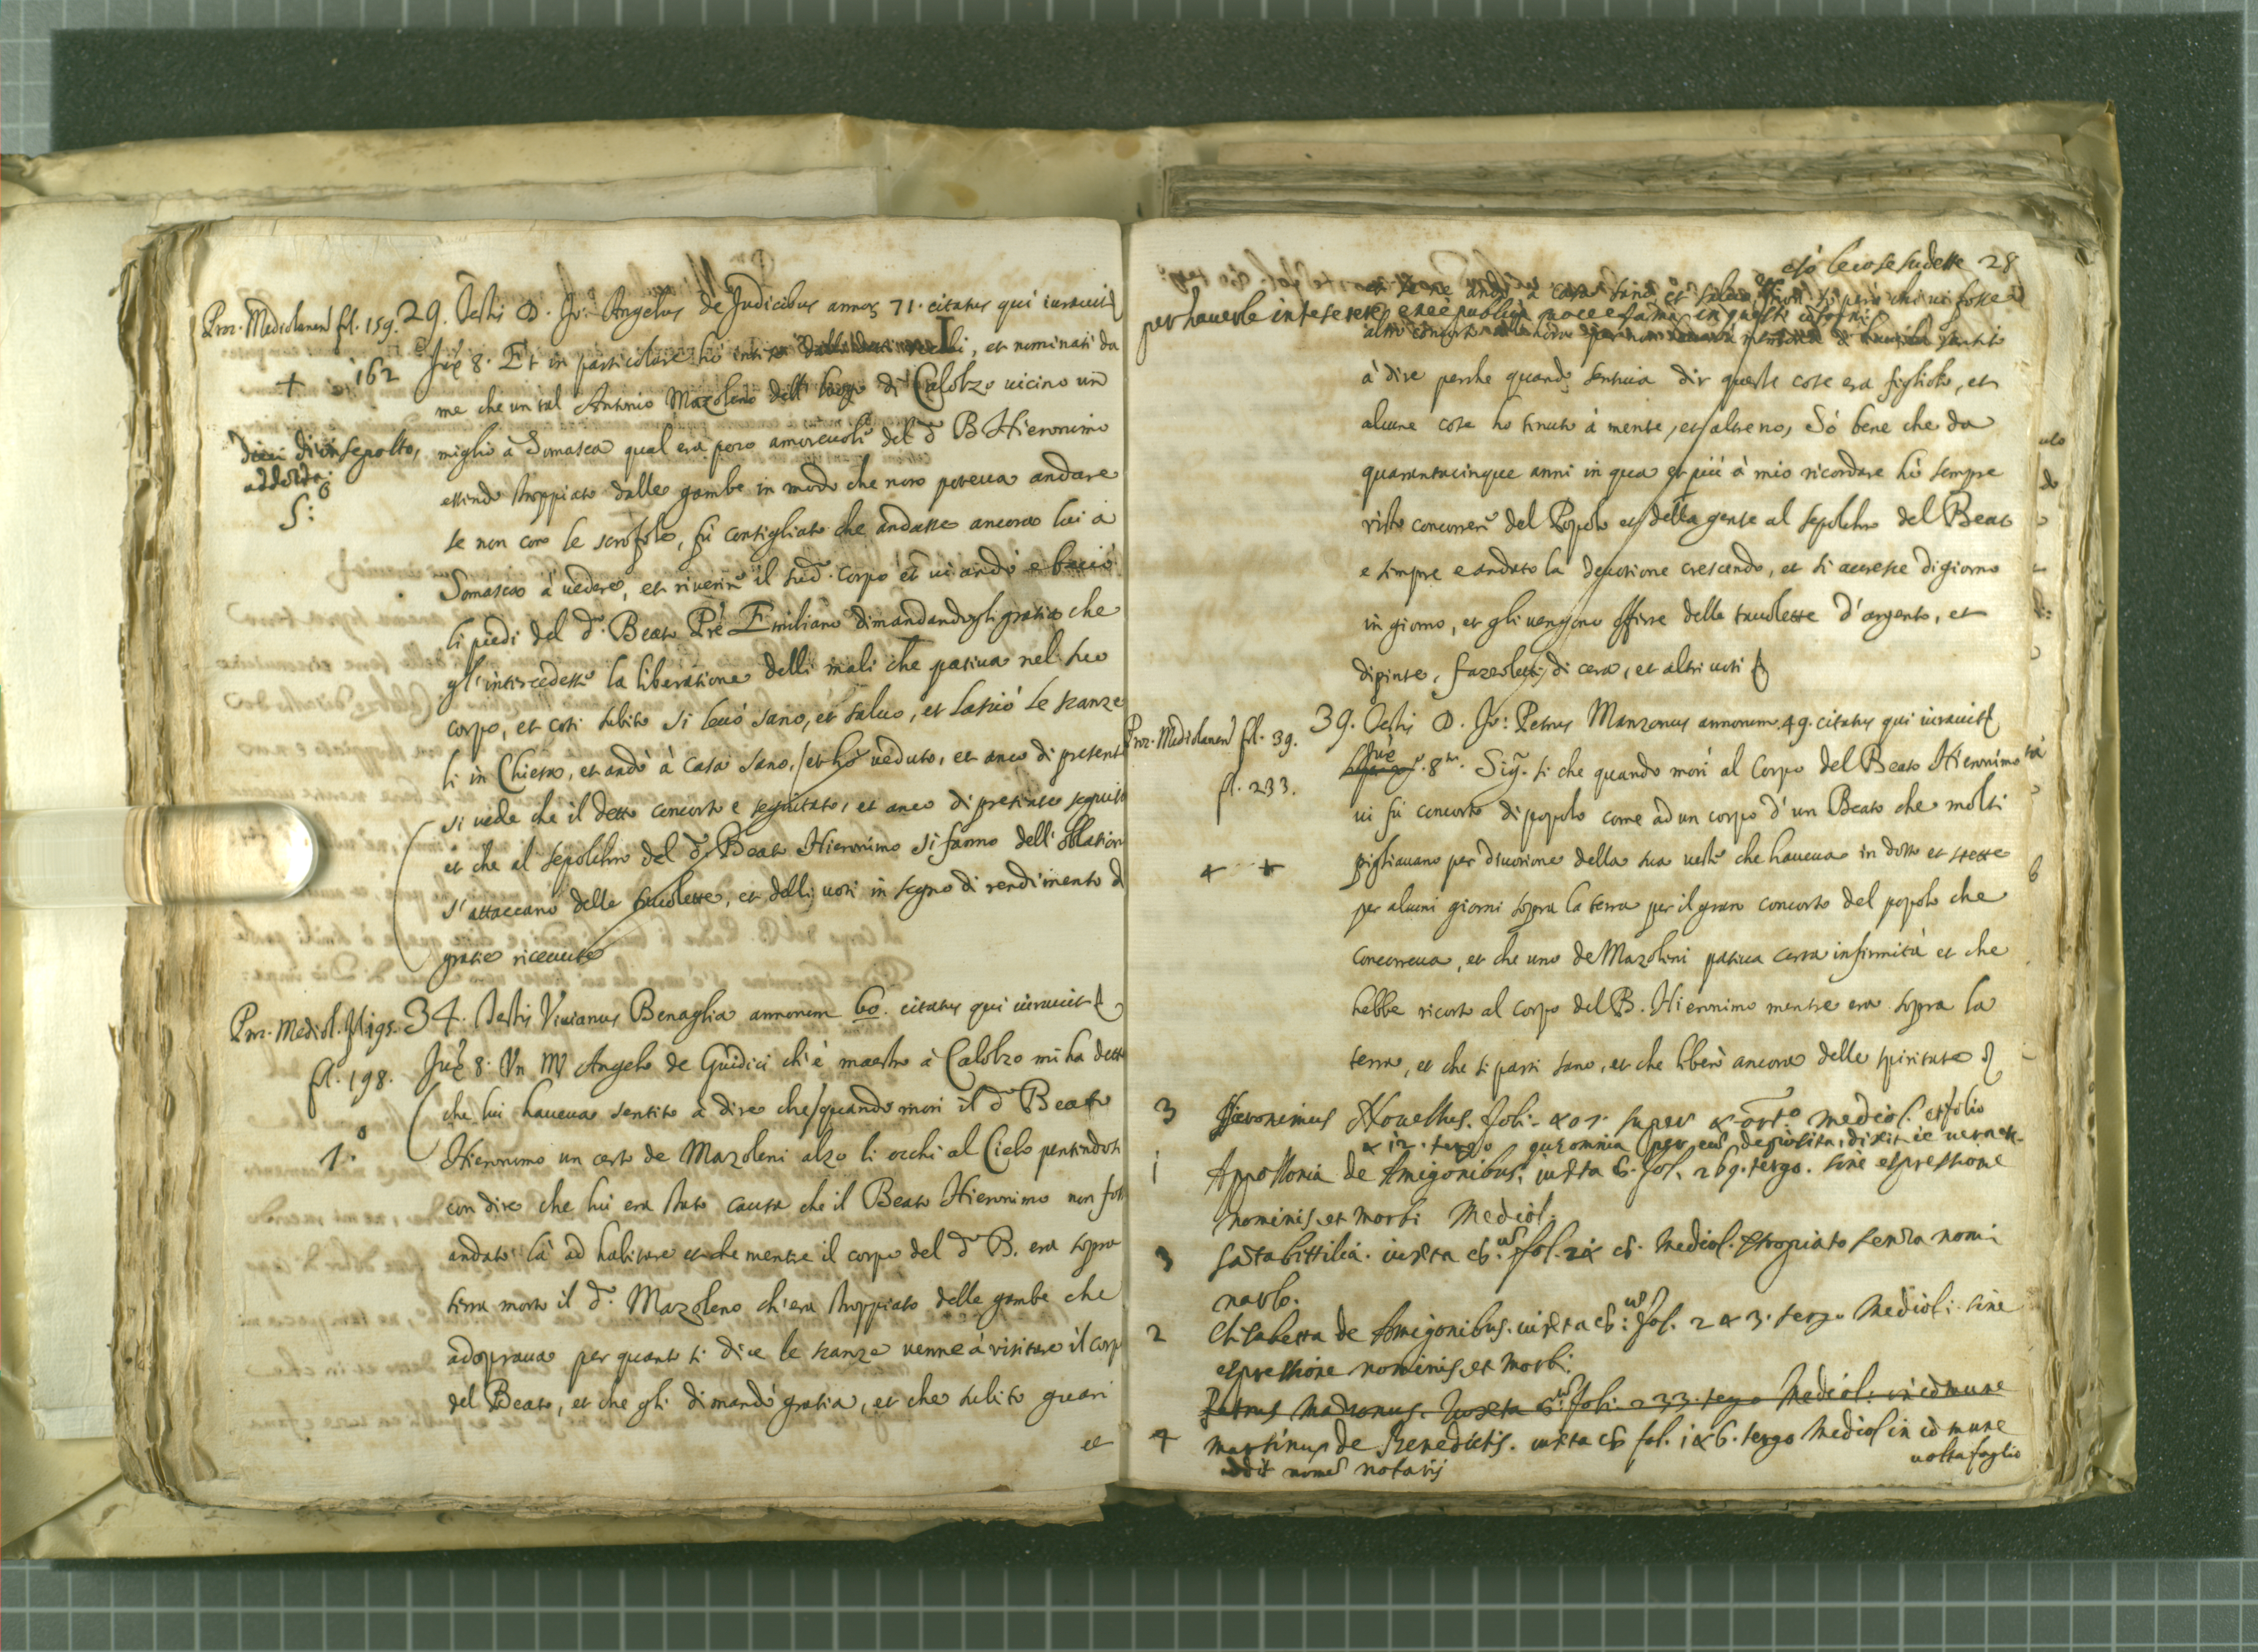 Proc. Mediolanen fol. 159. 29. Testis D. Jo: Angelus de Judicibus annoȝ 71. citatus qui iurauit
+ 162 Juxᵃ 8. Et in particolare hò inteso et nominati da
me che un tal Antonio Mazoleno dell luogo di Calolzo uicino un
miglio à Somasca qual era poco amoreuole del dᵒ B Hieronimo
essendo stroppiato dalle gambe in modo che non poteua andare
diui insepolto,
addolora
5:º
se non con le scrofole, fù consigliato che andasse ancora lui à
Somasca à uedere, et riuerire il sudᵒ. corpo et ui andò e baciò
li piedi del dᵒ. Beato Prē Emiliano dimandandogli gratia che
gl'intercedesse la liberatione delli mali che patiua nel suo
corpo, et così subito si leuò sano, et saluo, et lasciò le scanze
li in Chiesa, et andò à casa sano, et hò ueduto, et anco di presente
si uede che il detto concorso è seguitato, et anco di presente seguita
et che al sepolchro del dᵒ. Beato Hieronimo si fanno dell'oblation
s'attaccano delle tauolette, et delli uoti in segno di rendimento d
gratie riceuute
Proc. Mediol. fol 195. 34. Testis Viuianus Benaglia annorum 60. citatus qui iurauit
fol. 198. Juxᵃ 8. Un Mʳ Angelo de Giudici ch'è maestro à Calolzo mi ha detto
che lui haueua sentito à dire che quando morì il dᵒ Beato
1.º Hieronimo un certo de Mazoleni alzo li occhi al Cielo pentendosi
con dire che lui era stato causa che il Beato Hieronimo non foss
andato là ad habitare et che mentre il corpo del dᵒ B. era sopra
terra morto il dᵒ. Mazoleno ch'era stroppiato delle gambe che
adopraua per quanto si dice le scanze uenne à visitare il corp
del Beato, et che gli dimandò gratia, et che subito guarì
et
ciò le cose sudette 28
et se ne andò à casa sano et saluo
per hauerle intese et è publica uoce e fama in questi contorni
à dire perche quando sentiua dir queste cose era figliolo, et
alcune cose ho tenuto à mente, et altre no, Sò bene che da
quarantacinque anni in qua et più à mio ricordare hò sempre
visto concorrere del Popolo et della gente al sepolchro del Beato
e sempre e andato la deuotione crescendo, et si accresce di giorno
in giorno, et gli uengono offerre delle tauolette d'argento, et
dipinte, fazoletti, di cera, et altri uoti
Proc. Mediolanen fol. 39. 39. Testis D. Jo: Petrus Manzonus annorum 49. citatus qui iurauit
fol. 233. Juxᵃ 8ᵘᵐ. Sigʳ. si che quando morì al Corpo del Beato Hieronimo
ui fù concorso di popolo come ad un corpo d'un Beato che molti
+ + pigliauano per diuotione della sua ueste che haueua in dosso et stette
per alcuni giorni sopra la terra per il gran concorso del popolo che
concorreua, et che uno de Mazoleni patiua certa infirmità et che
hebbe ricorso al corpo del B. Hieronimo mentre era sopra la
terra, et che si partì sano, et che liberò ancora delle spiritate
3 Hieronimus Nouellus. foli. 401. super Mediol. et folio
412. tergo que omnia per eum deposita, dixit ēē uera
1 Appollonia de Amigonibus, iuxta 6. fol. 269. tergo. sine espressione
nominis et morbi Mediol.
3 iuxta Mediol. stropiato senza nomi
narlo.
2 Elisabetta de Amigonibus. iuxta 6: fol. 243. tergo Mediol: sine
espressione nominis et morbi.
Petrus Manzonus. Iuxta 6ᵘᵐ foli. 233. tergo Mediol: in cōmune
4 Martinus de Benedictis. iuxta 6 fol. 146. tergo Mediol in cōmune
nomē notarij
uolta foglio